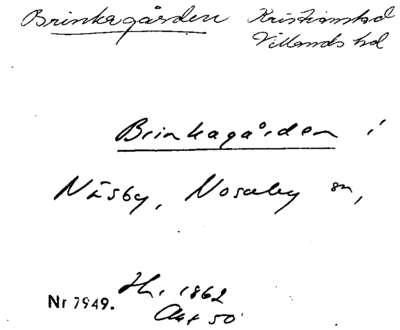 Brinkagården Kristianstad
Villands hd
Brinkagården i
Näsby, Nosaby sn,
Hn, 1862
Nr 7949. Akt 50